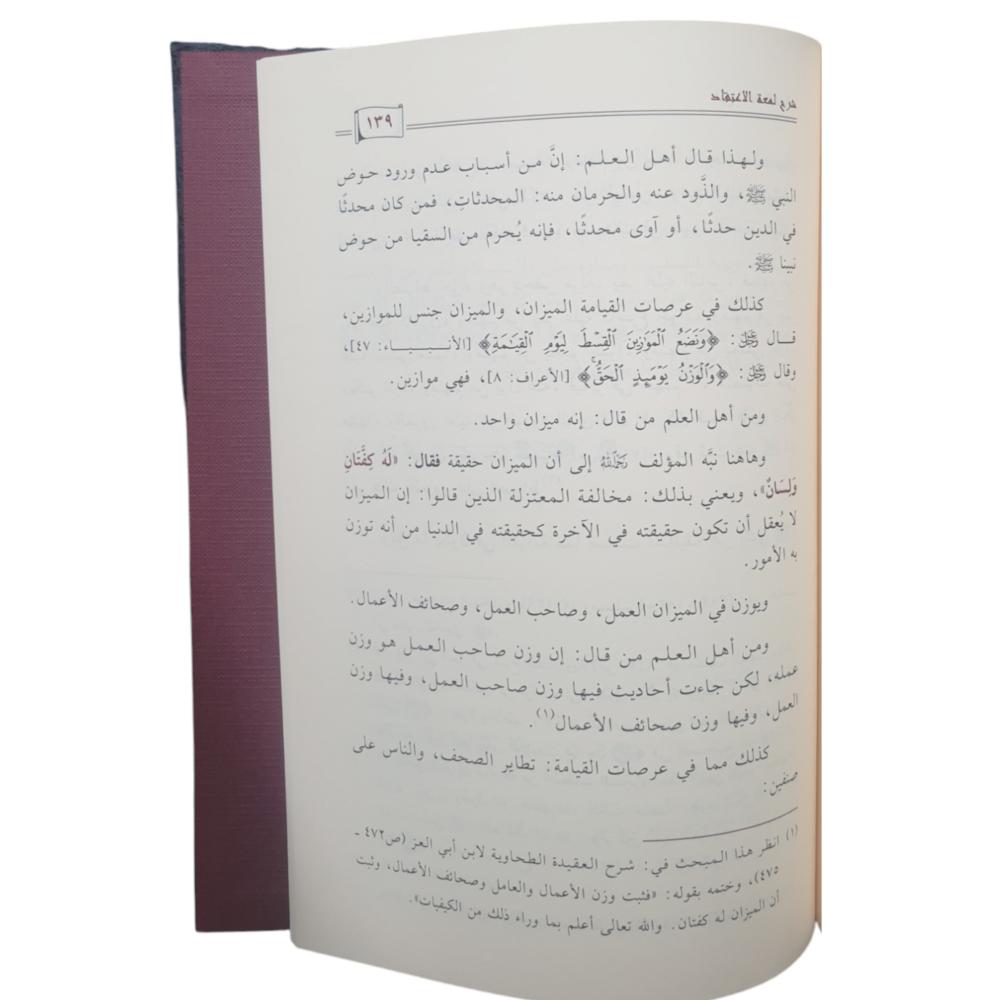 شرح لمعة الاعتقاد
١٣٩
ولهذا قال أهل العلم: إنَّ من أسباب عدم ورود حوض
النبي ﷺ، والذَّود عنه والحرمان منه: المحدثاتِ، فمن كان محدثًا
في الدين حدثًا، أو آوى محدثًا، فإنه يُحرم من السقيا من حوض
نبينا ﷺ.
كذلك في عرصات القيامة الميزان، والميزان جنس للموازين،
قال ﷻ: ﴿وَنَضَعُ ٱلْمَوَٰزِينَ ٱلْقِسْطَ لِيَوْمِ ٱلْقِيَٰمَةِ﴾ [الأنبياء: ٤٧]،
وقال ﷻ: ﴿وَٱلْوَزْنُ يَوْمَئِذٍ ٱلْحَقُّ﴾ [الأعراف: ٨]، فهي موازين.
ومن أهل العلم من قال: إنه ميزان واحد.
وهاهنا نبَّه المؤلف رحمه الله إلى أن الميزان حقيقة فقال: «لَهُ كِفَّتَانِ
وَلِسَانٌ»، ويعني بذلك: مخالفة المعتزلة الذين قالوا: إن الميزان
لا يُعقل أن تكون حقيقته في الآخرة كحقيقته في الدنيا من أنه توزن
به الأمور.
ويوزن في الميزان العمل، وصاحب العمل، وصحائف الأعمال.
ومن أهل العلم من قال: إن وزن صاحب العمل هو وزن
عمله، لكن جاءت أحاديث فيها وزن صاحب العمل، وفيها وزن
العمل، وفيها وزن صحائف الأعمال(١).
كذلك مما في عرصات القيامة: تطاير الصحف، والناس على
صنفين:
(١) انظر هذا المبحث في: شرح العقيدة الطحاوية لابن أبي العز (ص٤٧٢ ـ
٤٧٥)، وختمه بقوله: «فثبت وزن الأعمال والعامل وصحائف الأعمال، وثبت
أن الميزان له كفتان. والله تعالى أعلم بما وراء ذلك من الكيفيات».